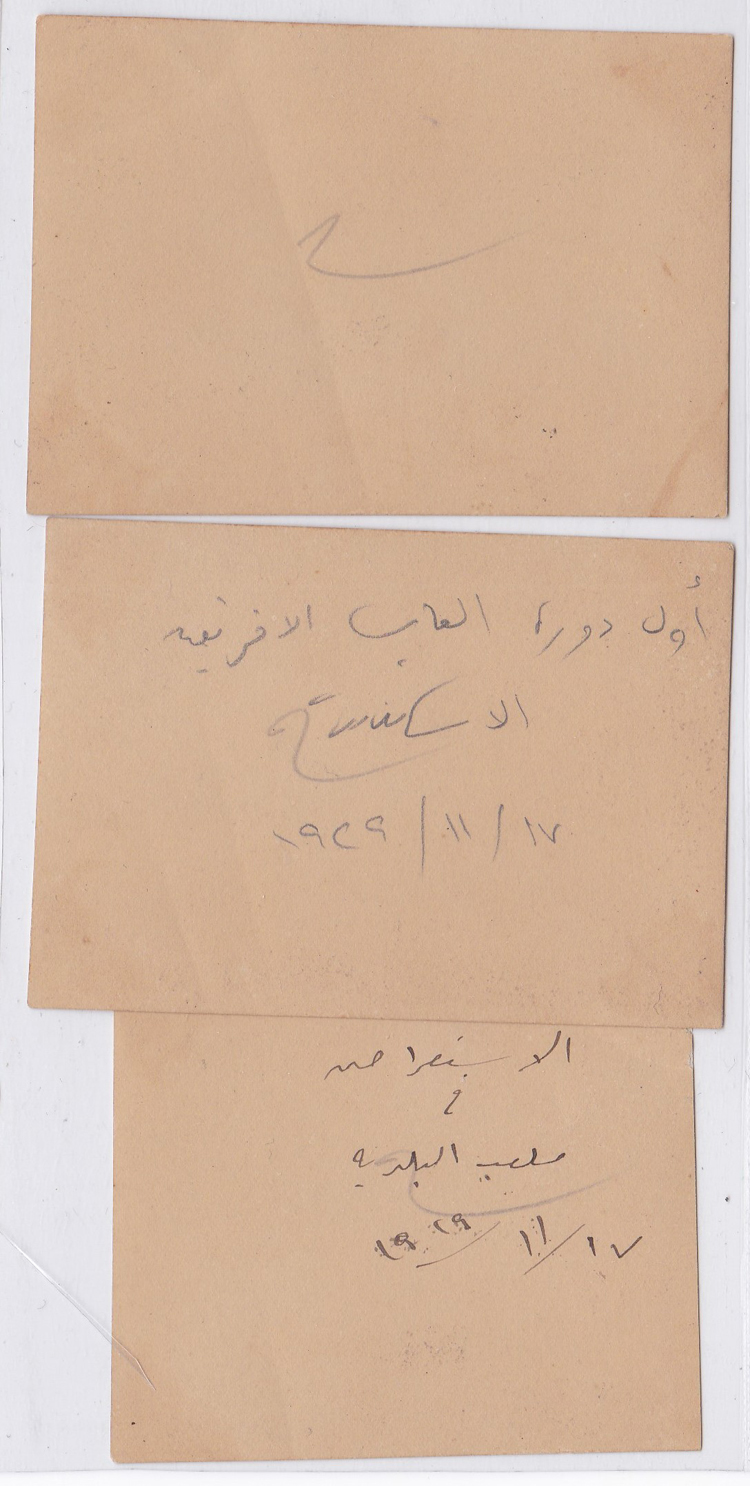 أول دورة العاب الافريقيه
الاسكندرية
١٧ / ١١ / ١٩٢٩
الاستعراض
في
ملعب البلدية
١٧ / ١١ / ١٩٢٩